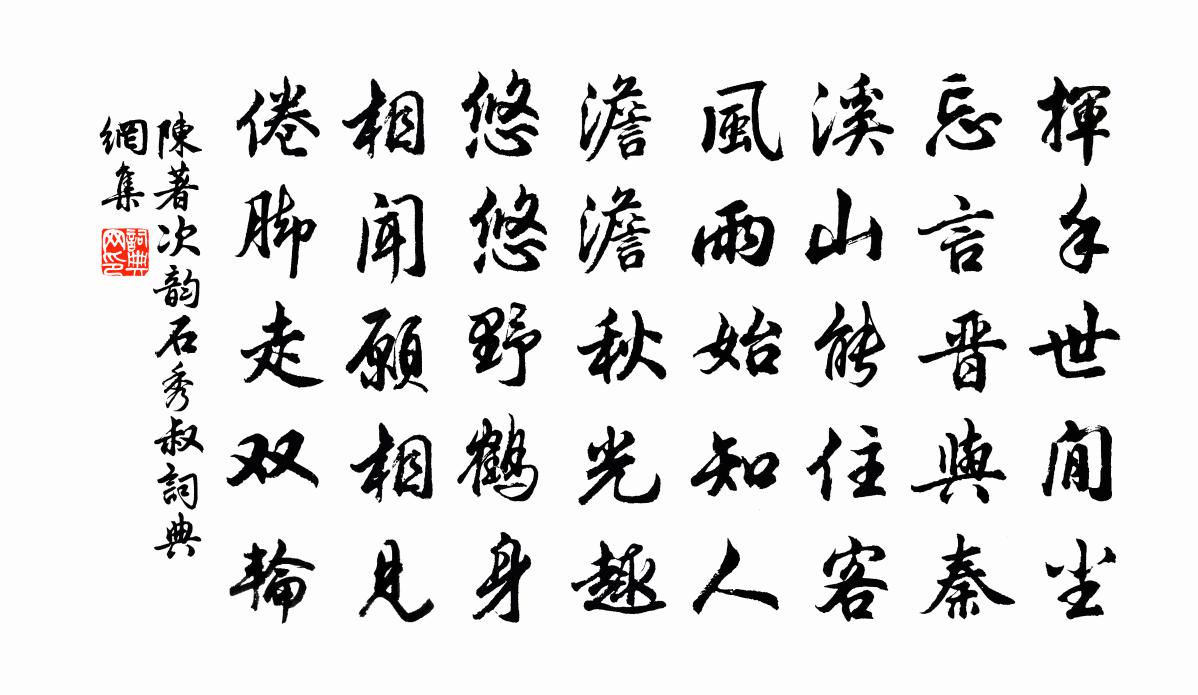 揮手世間尘
忘言晋與秦
溪山能住客
風雨始知人
澹澹秋光趣
悠悠野鶴身
相闻願相見
倦脚走双輪
陳著次韵石秀叔詞典
網集
詞典
网印